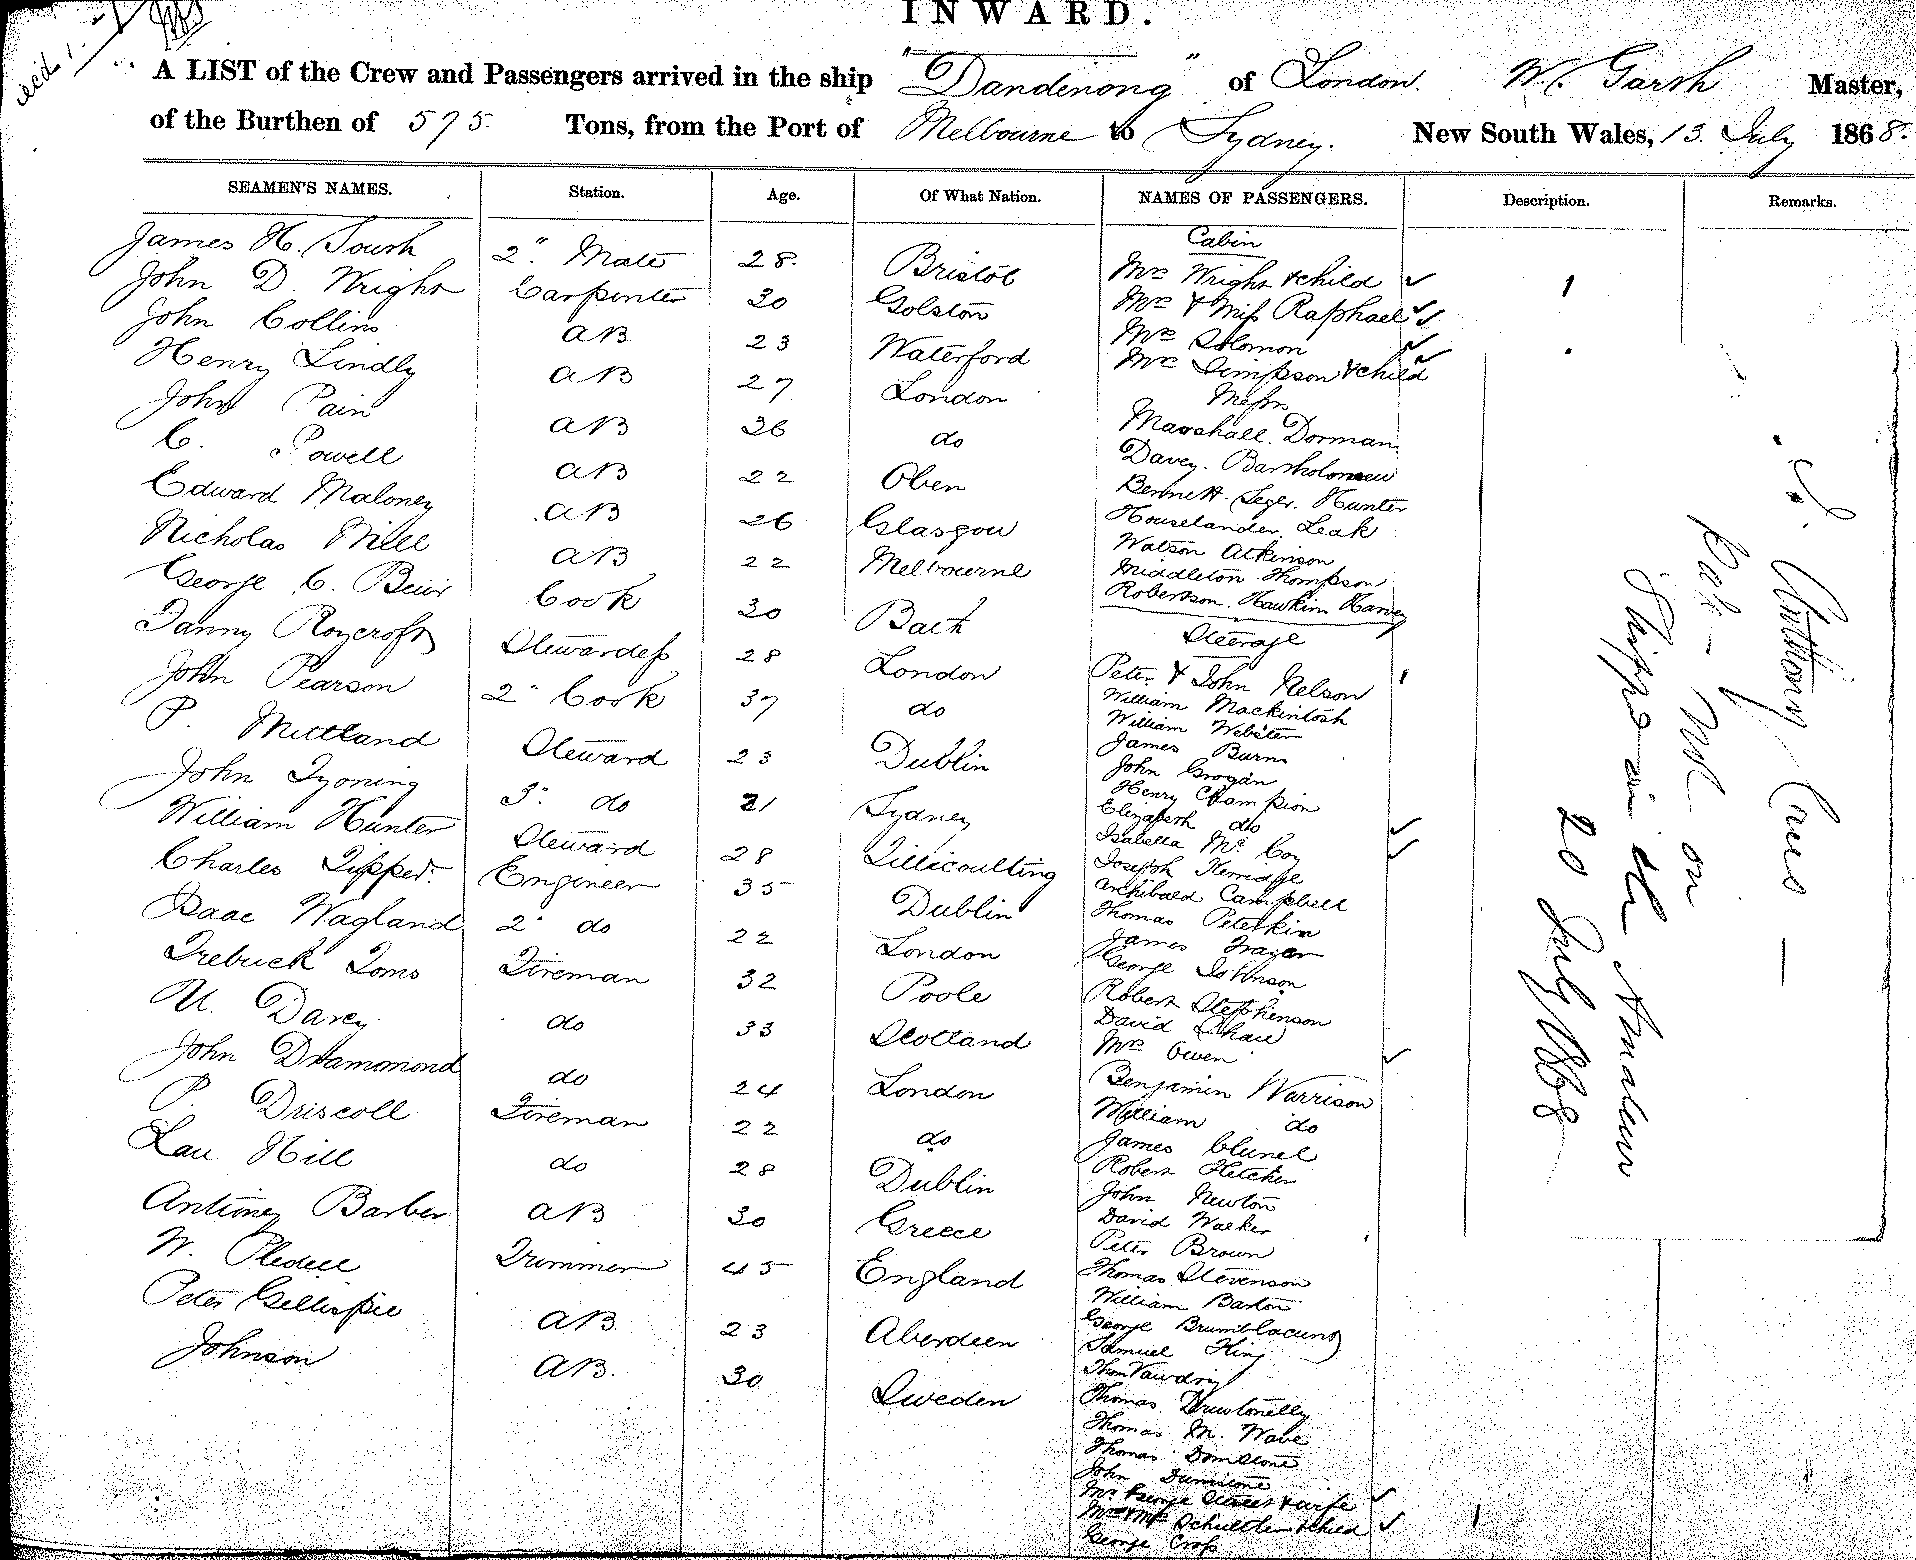 INWARD.
A LIST of the Crew and Passengers arrived in the ship "Dandenong" of London. W. Garth Master,
of the Burthen of 575 Tons, from the Port of Melbourne to Sydney. New South Wales, 13 July 1868.
SEAMEN'S NAMES. Station. Age. Of What Nation. NAMES OF PASSENGERS. Description. Remarks.
James H. South 2" Mate 28 Bristol
John D. Wright Carpenter 30 Golston
John Collins AB 23 Waterford
Henry Lindly AB 27 London
John Pain AB 36 do
C. Powell AB 22 Oben
Edward Maloney AB 26 Glasgow
Nicholas Mill AB 22 Melbourne
George C. Cook 30 Bath
Fanny Roycroft Stewardess 28 London
John Pearson 2" Cook 37 do
P. Steward 23 Dublin
John 3" do 21 Sydney
William Hunter Steward 28 Tillicoulting
Charles Engineer 35 Dublin
Isaac Wagland 2" do 22 London
Toms Fireman 32 Poole
Darcy do 33 Scotland
John Drammond do 24 London
P. Driscoll Fireman 22 do
Hill do 28 Dublin
Antioney Barber AB 30 Greece
W. Trimmer 45 England
Peter Gillispie AB 23 Aberdeen
Johnson AB. 30 Sweden
Cabin
Mrs Wright & child
Mrs & Miss Raphael
Mrs Solomon
Mrs Simpson & child
Messrs
Marshall. Dorman
Davey. Bartholomew
Bennett. Seger. Hunter
Houselander. Leak
Watson Atkinson
Middleton Thompson
Robertson. Hawkins Harvey
Steerage
Peter & John Nelson
William Mackintosh
William Webster
James Burns
John Grogan
Henry Champion
Elizabeth do
Isabella McCoy
Joseph Kerridge
Archibald Campbell
Thomas Peterkin
James Frazer
George Johnson
Robert Stephenson
David Shaw
Mrs Owen
Benjamin Warrison
William do
James Clunel
Robert Fletcher
John Newton
David Walker
Peter Brown
Thomas Stevenson
William Barton
George
Samuel King
Thos Vawdry
Thomas
Thomas M. Wave
Thomas
John
Mr George & wife
Mr & Mrs & child
George Cross
on
in the
20 July 1868